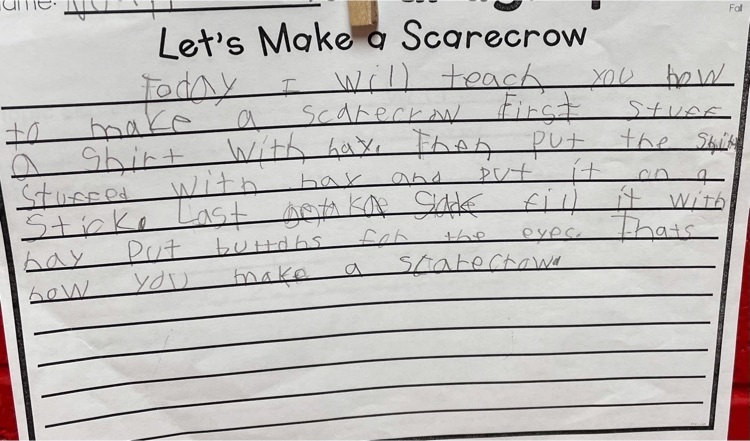 Name:
Fal
Let's Make a Scarecrow
Today I will teach you how
to make a scarecrow First stuff
a shirt with hay. Then put the shirt
stuffed with hay and put it on a
stick. Last fill it with
hay put buttons for the eyes. Thats
how you make a scarecrow.